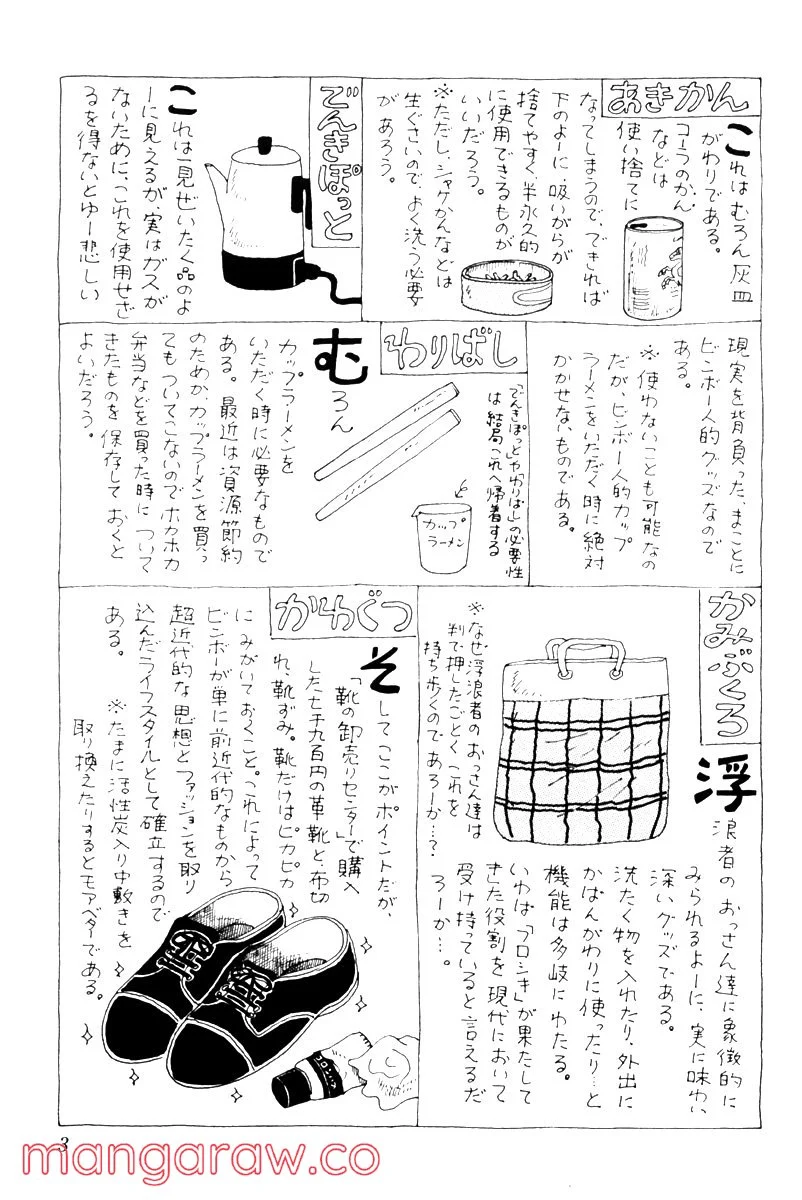 あきかん
これはむろん灰皿
がわりである。
コーラのかん
などは
使い捨てに
なってしまうので、できれば
下のよーに、吸いがらが
捨てやすく、半永久的
に使用できるものが
いいだろう。
※ただし、シャケかんなどは
生ぐさいので、よく洗う必要
があろう。
でんきぽっと
これは一見ぜいたく品のよ
ーに見えるが、実はガスが
ないために、これを使用せざ
るを得ないとゆー悲しい
現実を背負った、まことに
ビンボー人的グッズなので
ある。
※使わないことも可能なの
だが、ビンボー人的カップ
ラーメンをいただく時に絶対
かかせないものである。
わりばし
「でんきぽっと」や「わりばし」の必要性
は結局これへ帰着する
カップ
ラーメン
むろん
カップラーメンを
いただく時に必要なもので
ある。最近は資源節約
のためか、カップラーメンを買っ
てもついてこないのでホカホカ
弁当などを買った時について
きたものを保存しておくと
よいだろう。
かみぶくろ
浮浪者のおっさん達に象徴的に
みられるよーに、実に味わい
深いグッズである。
洗たく物を入れたり、外出に
かばんがわりに使ったり…と
機能は多岐にわたる。
いわば「フロシキ」が果たして
きた役割を現代において
受け持っていると言えるだ
ろーか…。
※なぜ浮浪者のおっさん達は
判で押したごとくこれを
持ち歩くのであろーか…?
かわぐつ
そしてここがポイントだが、
「靴の卸売りセンター」で購入
した七千九百円の革靴と、布切
れ、靴ずみ。靴だけはピカピカ
にみがいておくこと。これによって
ビンボーが単に前近代的なものから
超近代的な思想とファッションを取り
込んだライフスタイルとして確立するので
ある。
※たまに活性炭入り中敷きを
取り換えたりするとモアベターである。
コロンブス
3
mangaraw.co